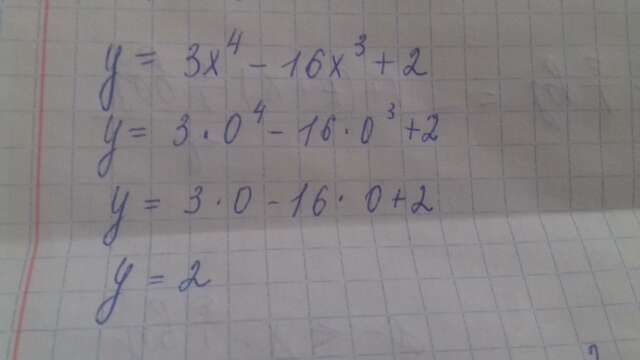 y = 3x⁴ - 16x³ + 2
y = 3 · 0⁴ - 16 · 0³ + 2
y = 3 · 0 - 16 · 0 + 2
y = 2